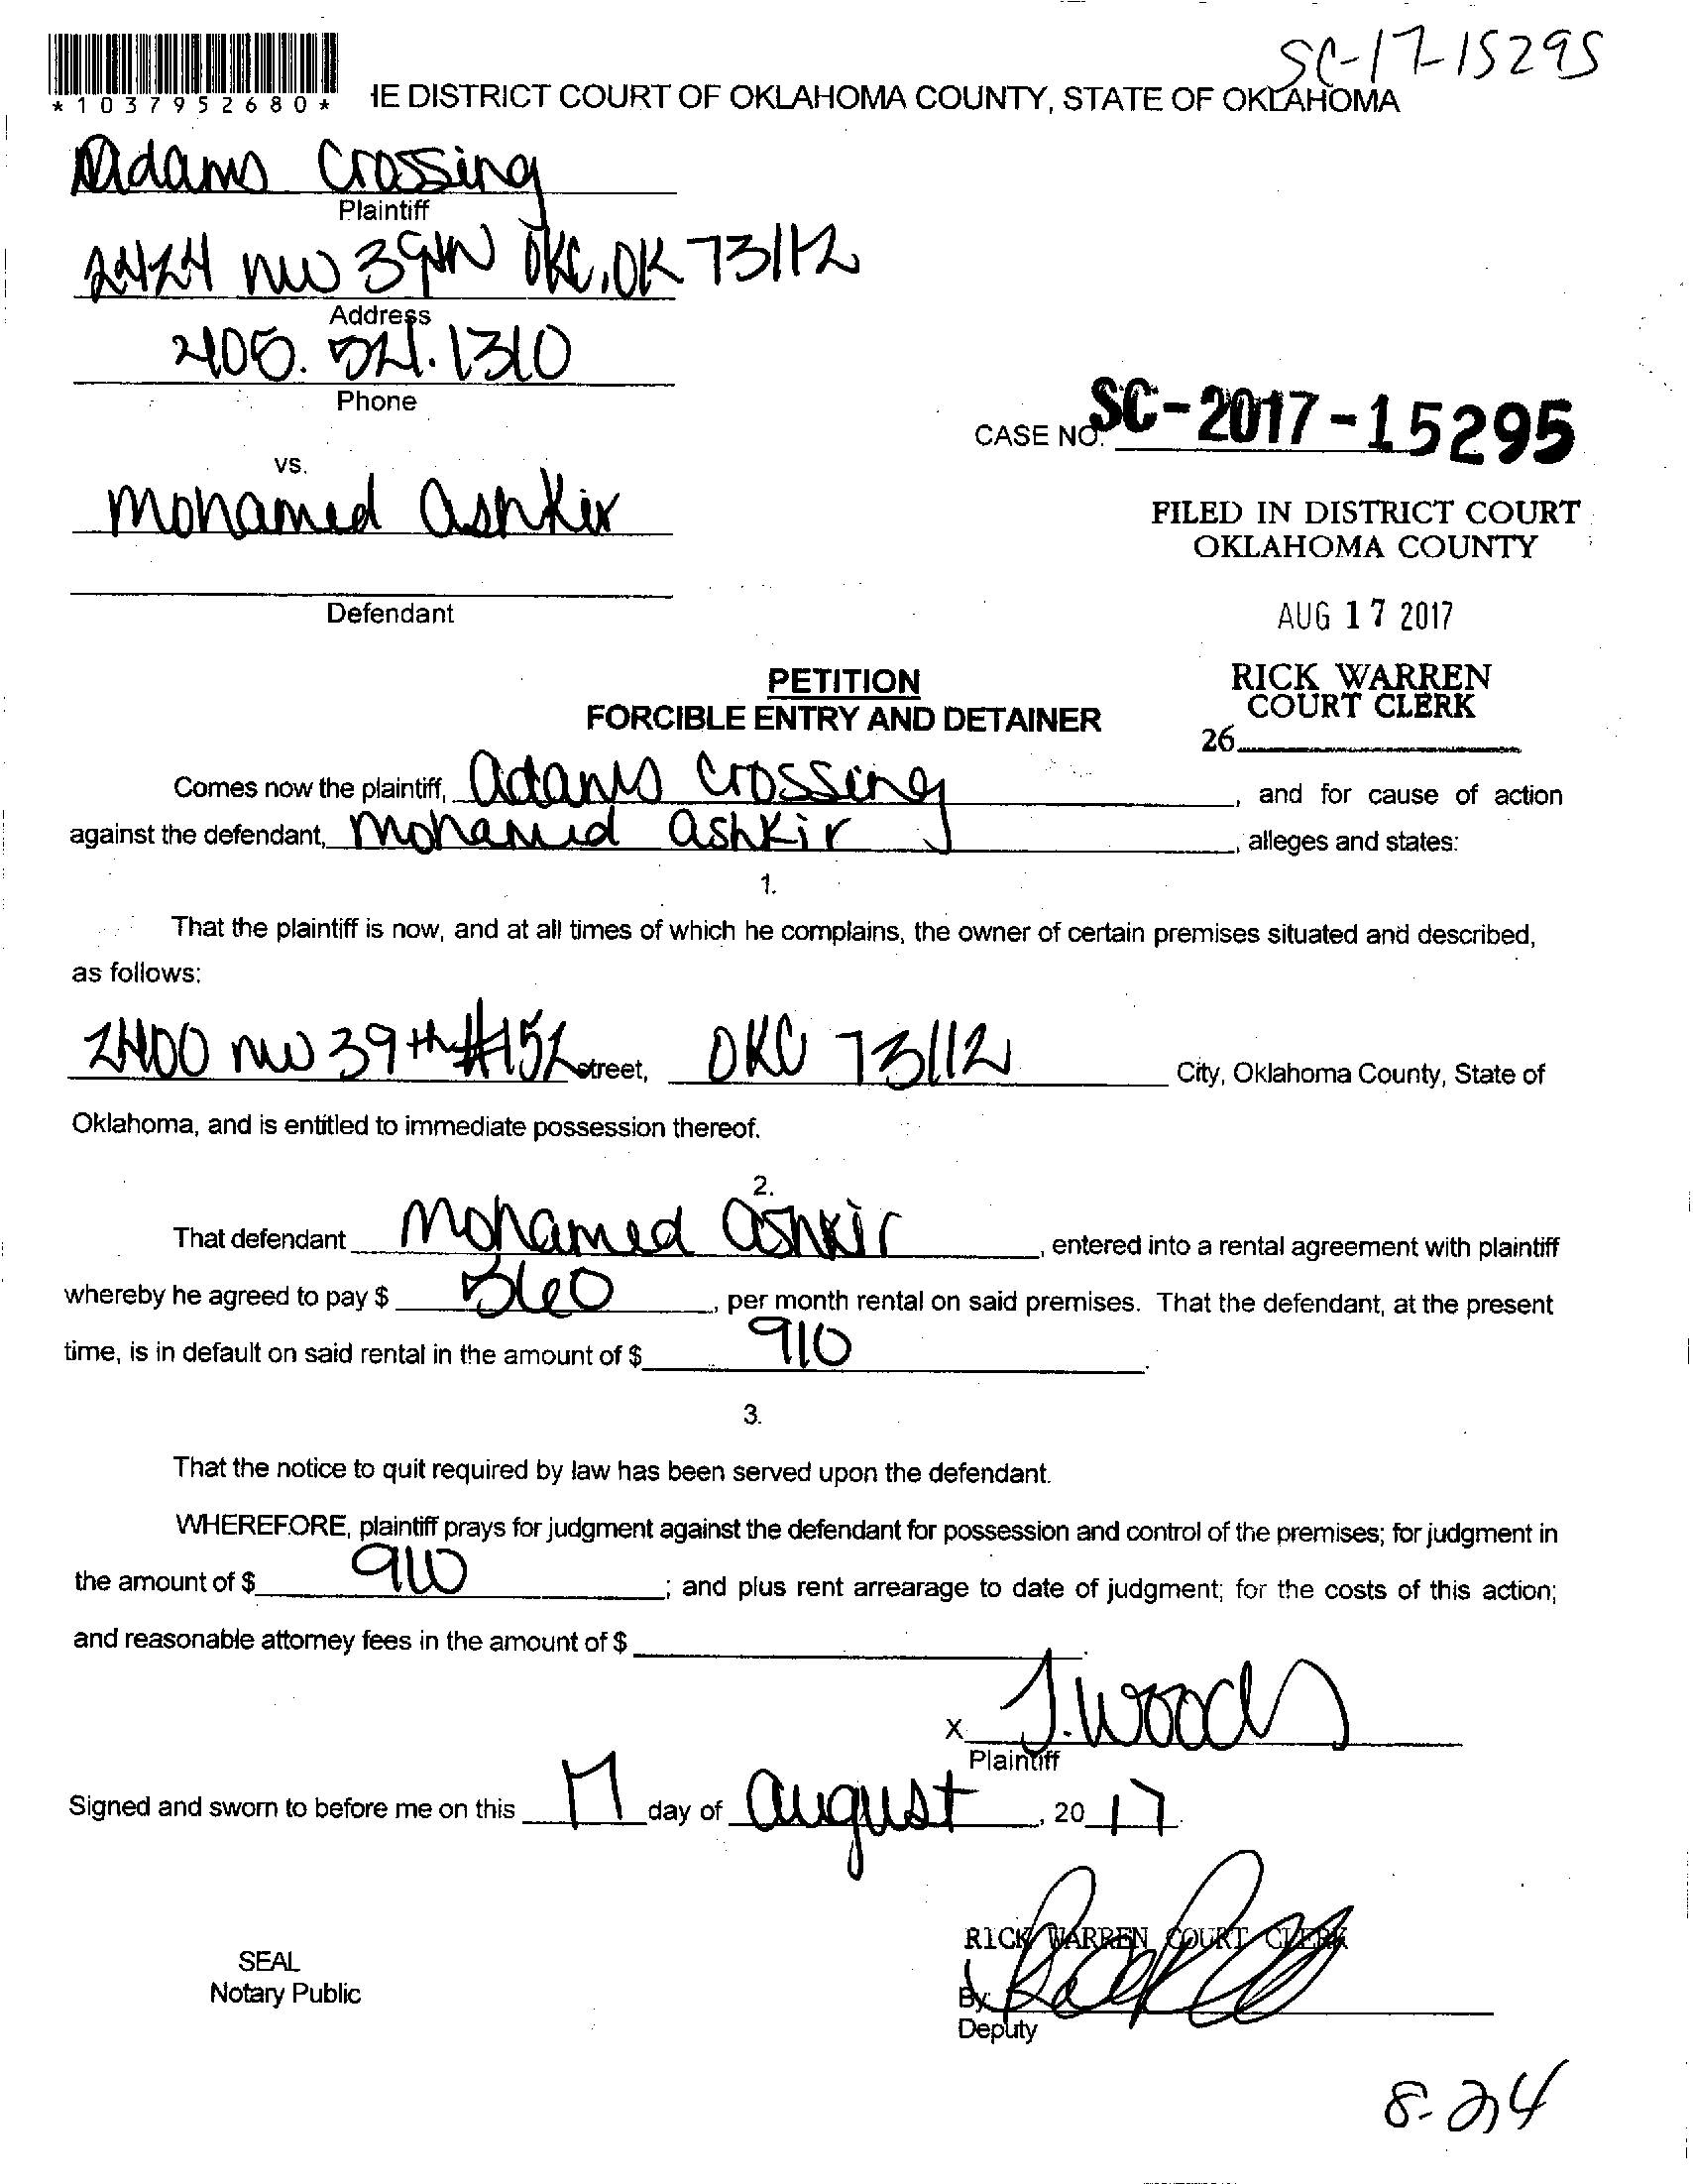 SC-17-15295
*1037952680* IE DISTRICT COURT OF OKLAHOMA COUNTY, STATE OF OKLAHOMA
Adams Crossing
Plaintiff
2424 NW 39th OKC, OK 73112
Address
405. 521. 1310
Phone
CASE NO. SC-2017-15295
vs.
Mohamed Ashkir
FILED IN DISTRICT COURT
OKLAHOMA COUNTY
Defendant
AUG 17 2017
PETITION
FORCIBLE ENTRY AND DETAINER
RICK WARREN
COURT CLERK
26
Comes now the plaintiff, Adams Crossing, and for cause of action
against the defendant, Mohamed Ashkir, alleges and states:
1.
That the plaintiff is now, and at all times of which he complains, the owner of certain premises situated and described,
as follows:
2400 NW 39th #152 street, OKC 73112 City, Oklahoma County, State of
Oklahoma, and is entitled to immediate possession thereof.
2.
That defendant Mohamed Ashkir, entered into a rental agreement with plaintiff
whereby he agreed to pay $ 560, per month rental on said premises. That the defendant, at the present
time, is in default on said rental in the amount of $ 910.
3.
That the notice to quit required by law has been served upon the defendant.
WHEREFORE, plaintiff prays for judgment against the defendant for possession and control of the premises; for judgment in
the amount of $ 910; and plus rent arrearage to date of judgment; for the costs of this action;
and reasonable attorney fees in the amount of $
X J. Woods
Plaintiff
Signed and sworn to before me on this 17 day of August, 2017.
RICK WARREN COURT CLERK
SEAL
Notary Public
By:
Deputy
8-24